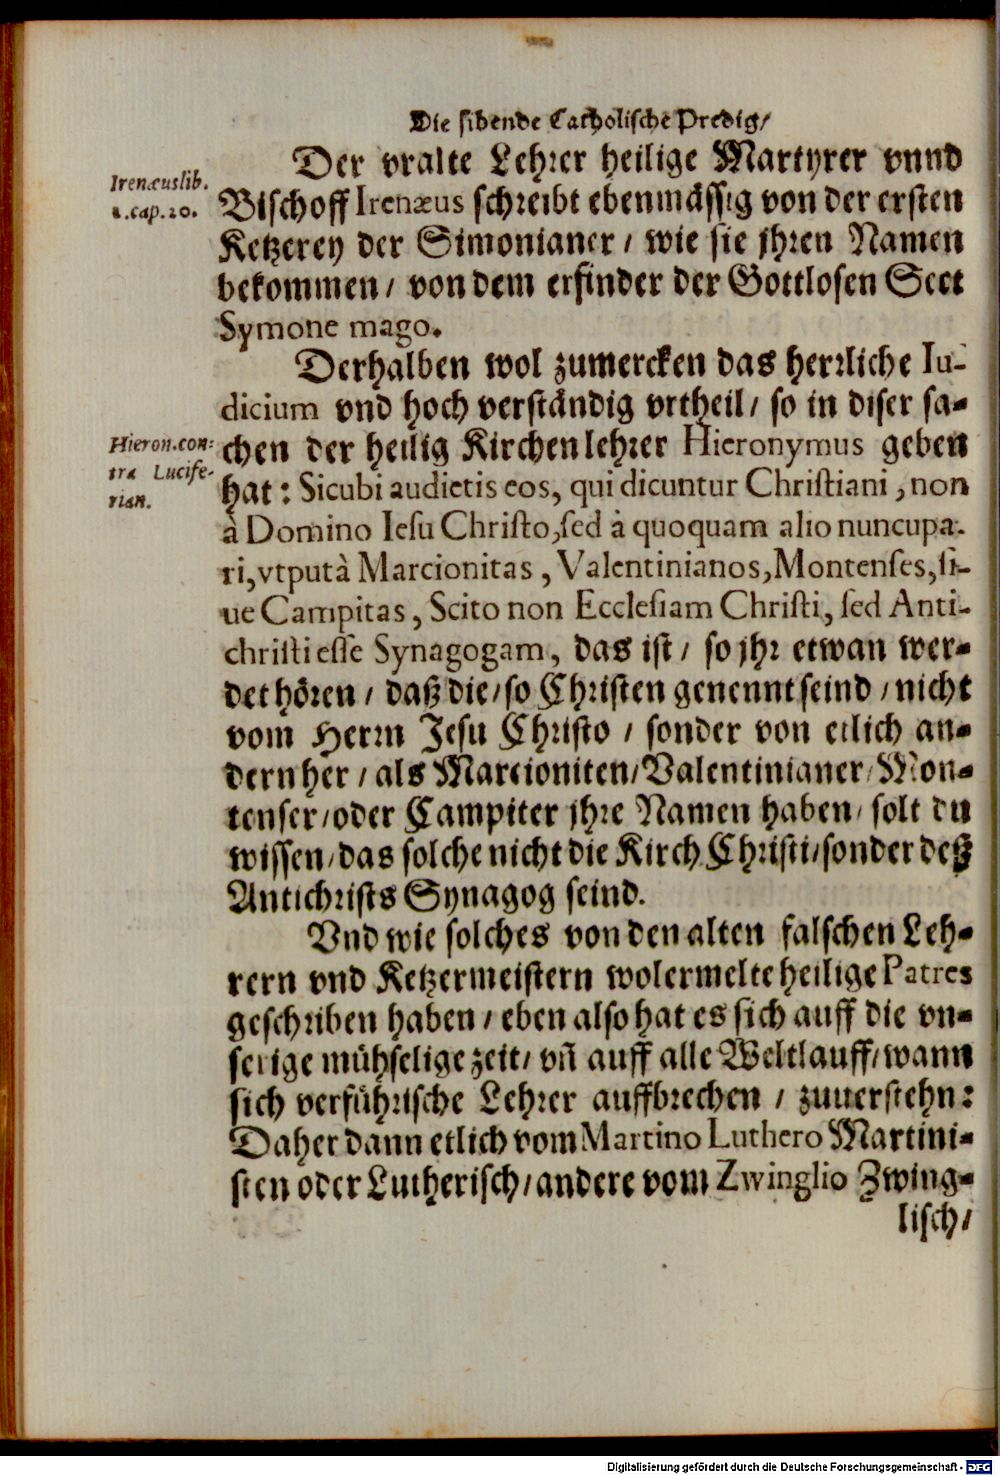 Die sibende Catholische Predig/
Der vralte Lehrer heilige Martyrer vnnd
Irenæus lib.
1. cap. 20.
Bischoff Irenæus schreibt ebenmässig von der ersten
Ketzerey der Simonianer / wie sie jhren Namen
bekommen / von dem erfinder der Gottlosen Sect
Symone mago.
Derhalben wol zumercken das herrliche Iu-
dicium vnd hoch verständig vrtheil / so in diser sa-
Hieron. con-
tra Lucife-
rian.
chen der heilig Kirchenlehrer Hieronymus geben
hat: Sicubi audietis eos, qui dicuntur Christiani, non
à Domino Iesu Christo, sed à quoquam alio nuncupa-
ri, vtputà Marcionitas, Valentinianos, Montenses, si-
ue Campitas, Scito non Ecclesiam Christi, sed Anti-
christi esse Synagogam, das ist / so jhr etwan wer-
det hören / daß die / so Christen genennt seind / nicht
vom Herrn Jesu Christo / sonder von etlich an-
dern her / als Marcioniten / Valentinianer / Mon-
tenser / oder Campiter jhre Namen haben / solt du
wissen / das solche nicht die Kirch Christi / sonder deß
Antichrists Synagog seind.
Vnd wie solches von den alten falschen Leh-
rern vnd Ketzermeistern wolermelte heilige Patres
geschriben haben / eben also hat es sich auff die vn-
serige mühselige zeit / vñ auff alle Weltlauff / wann
sich verführische Lehrer auffbrechen / zuuerstehn:
Daher dann etlich vom Martino Luthero Martini-
sten oder Lutherisch / andere vom Zwinglio Zwing-
lisch /
Digitalisierung gefördert durch die Deutsche Forschungsgemeinschaft - DFG